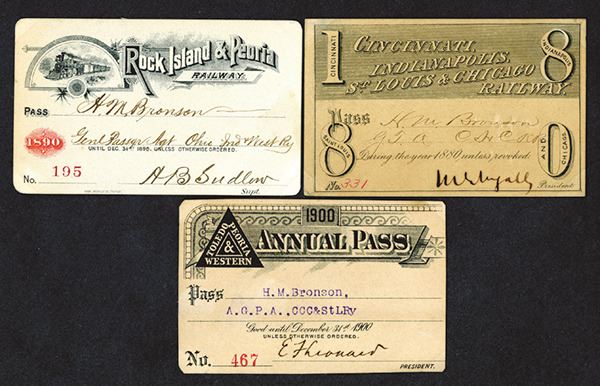 Rock Island & Peoria
RAILWAY.
PASS H. M. Bronson
Genl Passgr Agt Ohio Ind & West Ry
1890
UNTIL DEC. 31ST 1890. UNLESS OTHERWISE ORDERED.
No. 195
A B Sudlow
Supt.
1 CINCINNATI 8 INDIANAPOLIS
CINCINNATI,
INDIANAPOLIS,
ST LOUIS & CHICAGO
RAILWAY.
Pass H. M. Bronson
8 SAINT LOUIS 0 AND CHICAGO
During the year 1880 unless revoked.
No. 331
President
1900
TOLEDO PEORIA & WESTERN
ANNUAL PASS
Pass H.M.Bronson,
A.G.P.A.,CCC&StLRy
Good until December 31st 1900
UNLESS OTHERWISE ORDERED.
No. 467
E F Leonard
PRESIDENT.